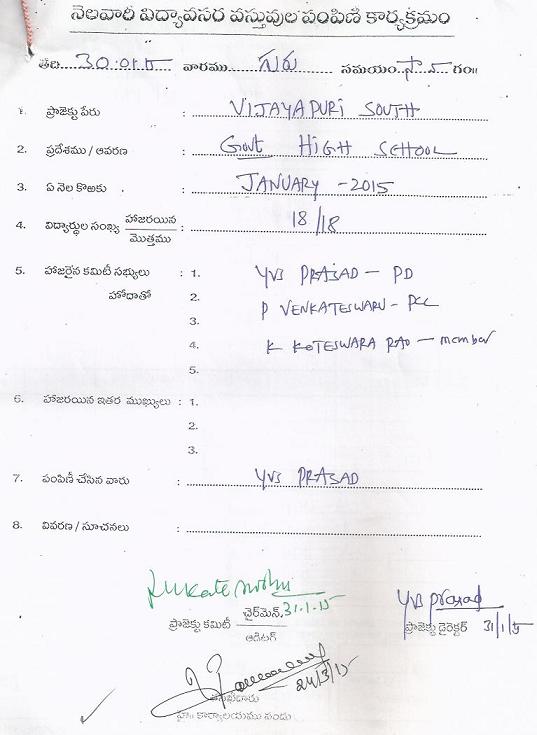 నెలవారీ విద్యావసర వస్తువుల పంపిణీ కార్యక్రమం
తేది.... 30.01.15 వారము.... గురు సమయం.. సా 5 గం॥
1. ప్రాజెక్టు పేరు : VIJAYAPURI SOUTH
2. ప్రదేశము / ఆవరణ : Govt HIGH SCHOOL
3. ఏ నెల కొఱకు : JANUARY - 2015
4. విద్యార్థుల సంఖ్య హాజరయిన / మొత్తము : 18/18
5. హాజరైన కమిటీ సభ్యులు : 1. YVB PRASAD - PD
హోదాతో 2. P VENKATESWARU - PCC
3.
4. K KOTESWARA RAO - member
5.
6. హాజరయిన ఇతర ముఖ్యులు : 1.
2.
3.
7. పంపిణీ చేసిన వారు : YVB PRASAD
8. వివరణ / సూచనలు :
ఛైర్మెన్, 31.1.15
ప్రాజెక్టు కమిటీ
ఆడిటర్
YVB Prasad
ప్రాజెక్టు డైరెక్టర్ 31/1/15
24/3/15
కార్యాలయము నందు